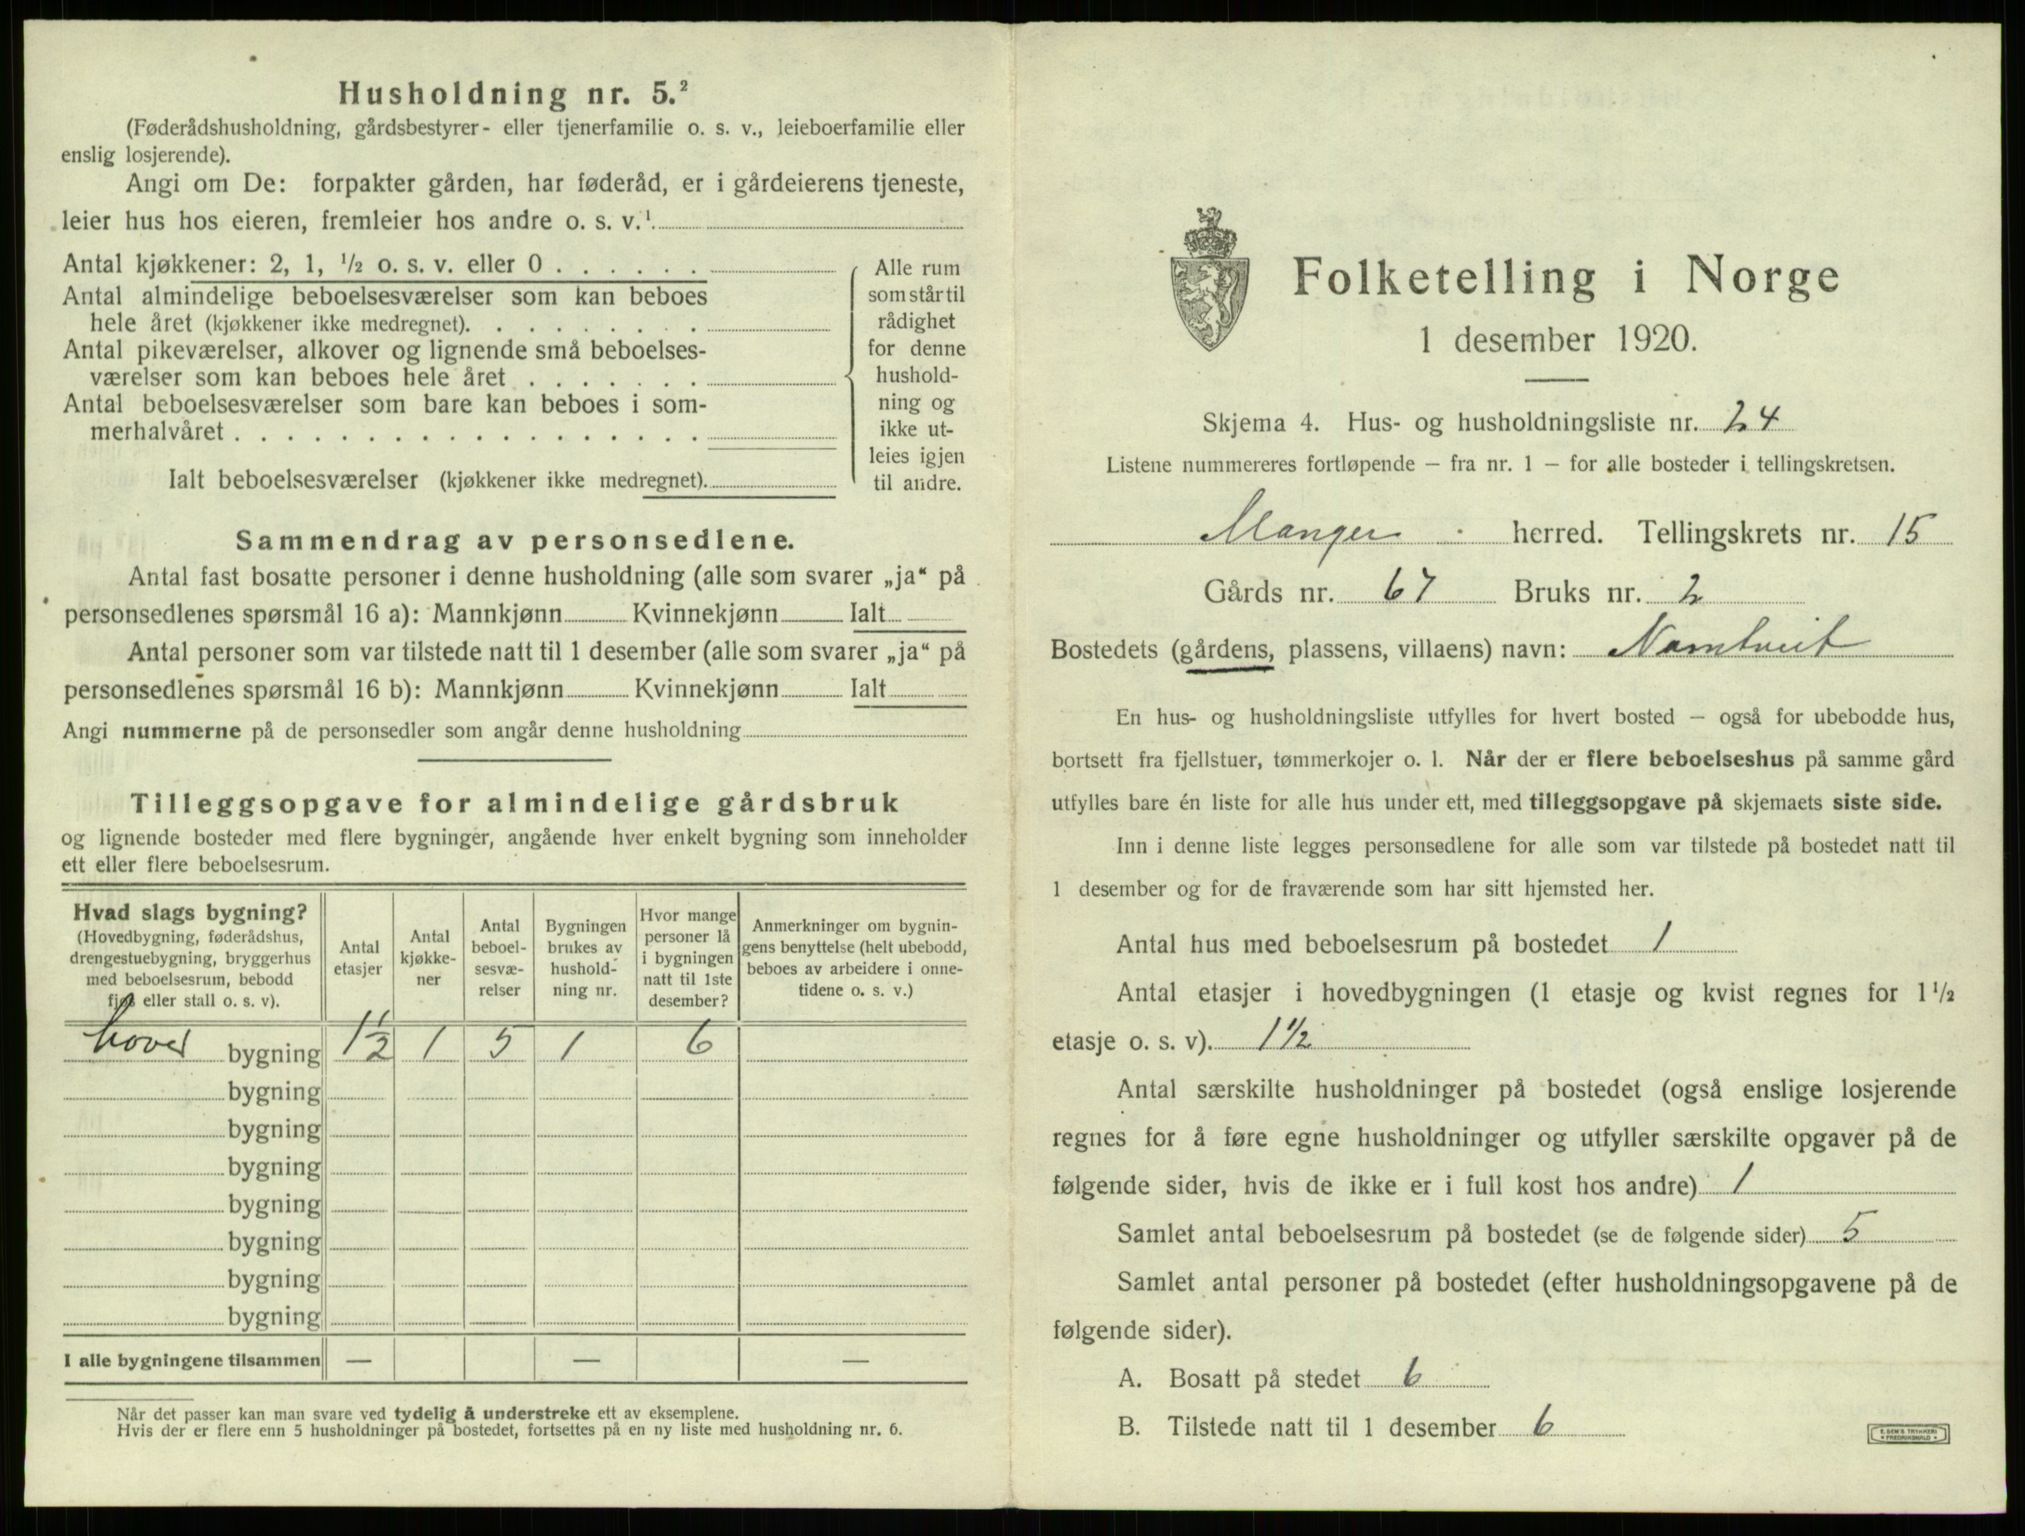 Husholdning nr. 5.²
(Føderådshusholdning, gårdsbestyrer- eller tjenerfamilie o. s. v., leieboerfamilie eller
enslig losjerende).
Angi om De: forpakter gården, har føderåd, er i gårdeierens tjeneste,
leier hus hos eieren, fremleier hos andre o. s. v.¹
Antal kjøkkener: 2, 1, ½ o. s. v. eller 0 . . . . . .
Antal almindelige beboelsesværelser som kan beboes
hele året (kjøkkener ikke medregnet). . . . . . . . .
Antal pikeværelser, alkover og lignende små beboelses-
værelser som kan beboes hele året . . . . . . .
Antal beboelsesværelser som bare kan beboes i som-
merhalvåret . . . . . . . . . . . . . . . . . .
Ialt beboelsesværelser (kjøkkener ikke medregnet).
Alle rum
som står til
rådighet
for denne
hushold-
ning og
ikke ut-
leies igjen
til andre.
Sammendrag av personsedlene.
Antal fast bosatte personer i denne husholdning (alle som svarer „ja“ på
personsedlenes spørsmål 16 a): Mannkjønn Kvinnekjønn Ialt
Antal personer som var tilstede natt til 1 desember (alle som svarer „ja“ på
personsedlenes spørsmål 16 b): Mannkjønn Kvinnekjønn Ialt
Angi nummerne på de personsedler som angår denne husholdning
Tilleggsopgave for almindelige gårdsbruk
og lignende bosteder med flere bygninger, angående hver enkelt bygning som inneholder
ett eller flere beboelsesrum.
Hvad slags bygning?
(Hovedbygning, føderådshus,
drengestuebygning, bryggerhus
med beboelsesrum, bebodd
fjøs eller stall o. s. v).
Antal
etasjer
Antal
kjøkke-
ner
Antal
beboel-
sesvæ-
relser
Bygningen
brukes av
hushold-
ning nr.
Hvor mange
personer lå
i bygningen
natt til 1ste
desember?
Anmerkninger om bygnin-
gens benyttelse (helt ubebodd,
beboes av arbeidere i onne-
tidene o. s. v.)
hoved bygning 1½ 1 5 1 6
bygning
bygning
bygning
bygning
bygning
bygning
bygning
I alle bygningene tilsammen — — —
Når det passer kan man svare ved tydelig å understreke ett av eksemplene.
Hvis der er flere enn 5 husholdninger på bostedet, fortsettes på en ny liste med husholdning nr. 6.
Folketelling i Norge
1 desember 1920.
Skjema 4. Hus- og husholdningsliste nr. 24
Listene nummereres fortløpende — fra nr. 1 — for alle bosteder i tellingskretsen.
Manger herred. Tellingskrets nr. 15
Gårds nr. 67 Bruks nr. 2
Bostedets (gårdens, plassens, villaens) navn: Namtveit
En hus- og husholdningsliste utfylles for hvert bosted — også for ubebodde hus,
bortsett fra fjellstuer, tømmerkojer o. l. Når der er flere beboelseshus på samme gård
utfylles bare én liste for alle hus under ett, med tilleggsopgave på skjemaets siste side.
Inn i denne liste legges personsedlene for alle som var tilstede på bostedet natt til
1 desember og for de fraværende som har sitt hjemsted her.
Antal hus med beboelsesrum på bostedet 1
Antal etasjer i hovedbygningen (1 etasje og kvist regnes for 1½
etasje o. s. v). 1½
Antal særskilte husholdninger på bostedet (også enslige losjerende
regnes for å føre egne husholdninger og utfyller særskilte opgaver på de
følgende sider, hvis de ikke er i full kost hos andre) 1
Samlet antal beboelsesrum på bostedet (se de følgende sider) 5
Samlet antal personer på bostedet (efter husholdningsopgavene på de
følgende sider).
A. Bosatt på stedet 6
B. Tilstede natt til 1 desember 6
E. SEM'S TRYKKERI
FREDRIKSHALD